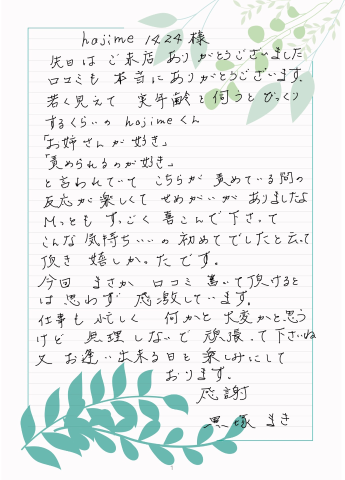 hajime 1424 様
先日は ご来店 ありがとうございました
口コミも 本当に ありがとうございます。
若く見えて 実年齢と伺うと びっくり
するくらいの hajimeくん
「お姉さんが好き」
「責められるのが好き」
と言われていて こちらが 責めている間の
反応が楽しくて せめがいが ありましたよ
Mっとも すっごく 喜こんで下さって
こんな 気持ちいいの 初めてでしたと云って
頂き 嬉しかったです。
今回 まさか 口コミ 書いて頂けると
は 思わず 感激しています。
仕事も 忙しく 何かと 大変かと思う
けど 無理 しないで 頑張って下さいね
又 お逢い出来る日を 楽しみにして
おります。
感謝
黒塚 まき